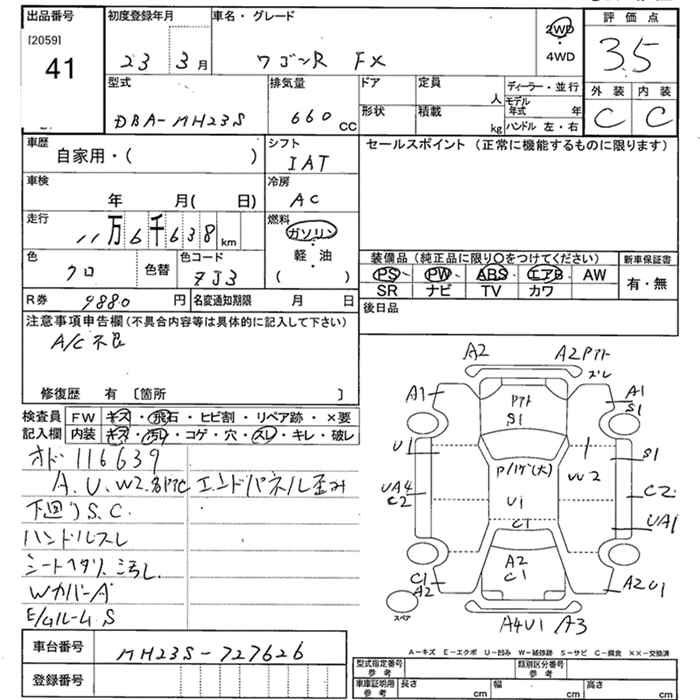 出品番号 初度登録年月 車名・グレード 2WD 評価点
[2059] ・
41 23 3月 ワゴンR FX 4WD 3.5
型式 排気量 ドア 定員 ディーラー・並行 外装 内装
人 モデル年式 年
DBA-MH23S 660cc 形状 積載 kg ハンドル 左・右 C C
車歴 自家用・( ) シフト IAT セールスポイント (正常に機能するものに限ります)
車検 年 月( 日) 冷房 AC
走行 11万6千638km 燃料 ガソリン・軽油 ( )
色 クロ 色替 色コード ZJ3
装備品 (純正品に限り○をつけてください) 新車保証書
PS PW ABS エアB AW 有・無
SR ナビ TV カワ
R券 9880円 名変通知期限 月 日 後日品
注意事項申告欄 (不具合内容等は具体的に記入して下さい)
A/C不良
修復歴 有 〔箇所 〕
検査員 FW キズ・飛石・ヒビ割・リペア跡・×要
記入欄 内装 キズ・汚れ・コゲ・穴・スレ・キレ・破レ
オド116639
A.U.W2.各所C エンドパネル歪み
下廻りS.C.
ハンドルスレ
シートヘタリ、汚し
WカバーA
E/gルームS
A2 A2 Pアト
ズレ
A1 Pアト A1
S1 S1
U1 P/ハゲ(大) S1
W2
UA4 U1 C2
C2
C1 UA1
A2
C1
C1 A2 U1
A2
スペア
A4U1 A3
A-キズ E-エクボ U-凹み W-補修跡 S-サビ C-腐食 ××-交換済
車台番号 MH23S-727626
登録番号
型式指定番号 参考 類別区分番号 参考
車庫証明用 参考 長さ cm 幅 cm 高さ cm